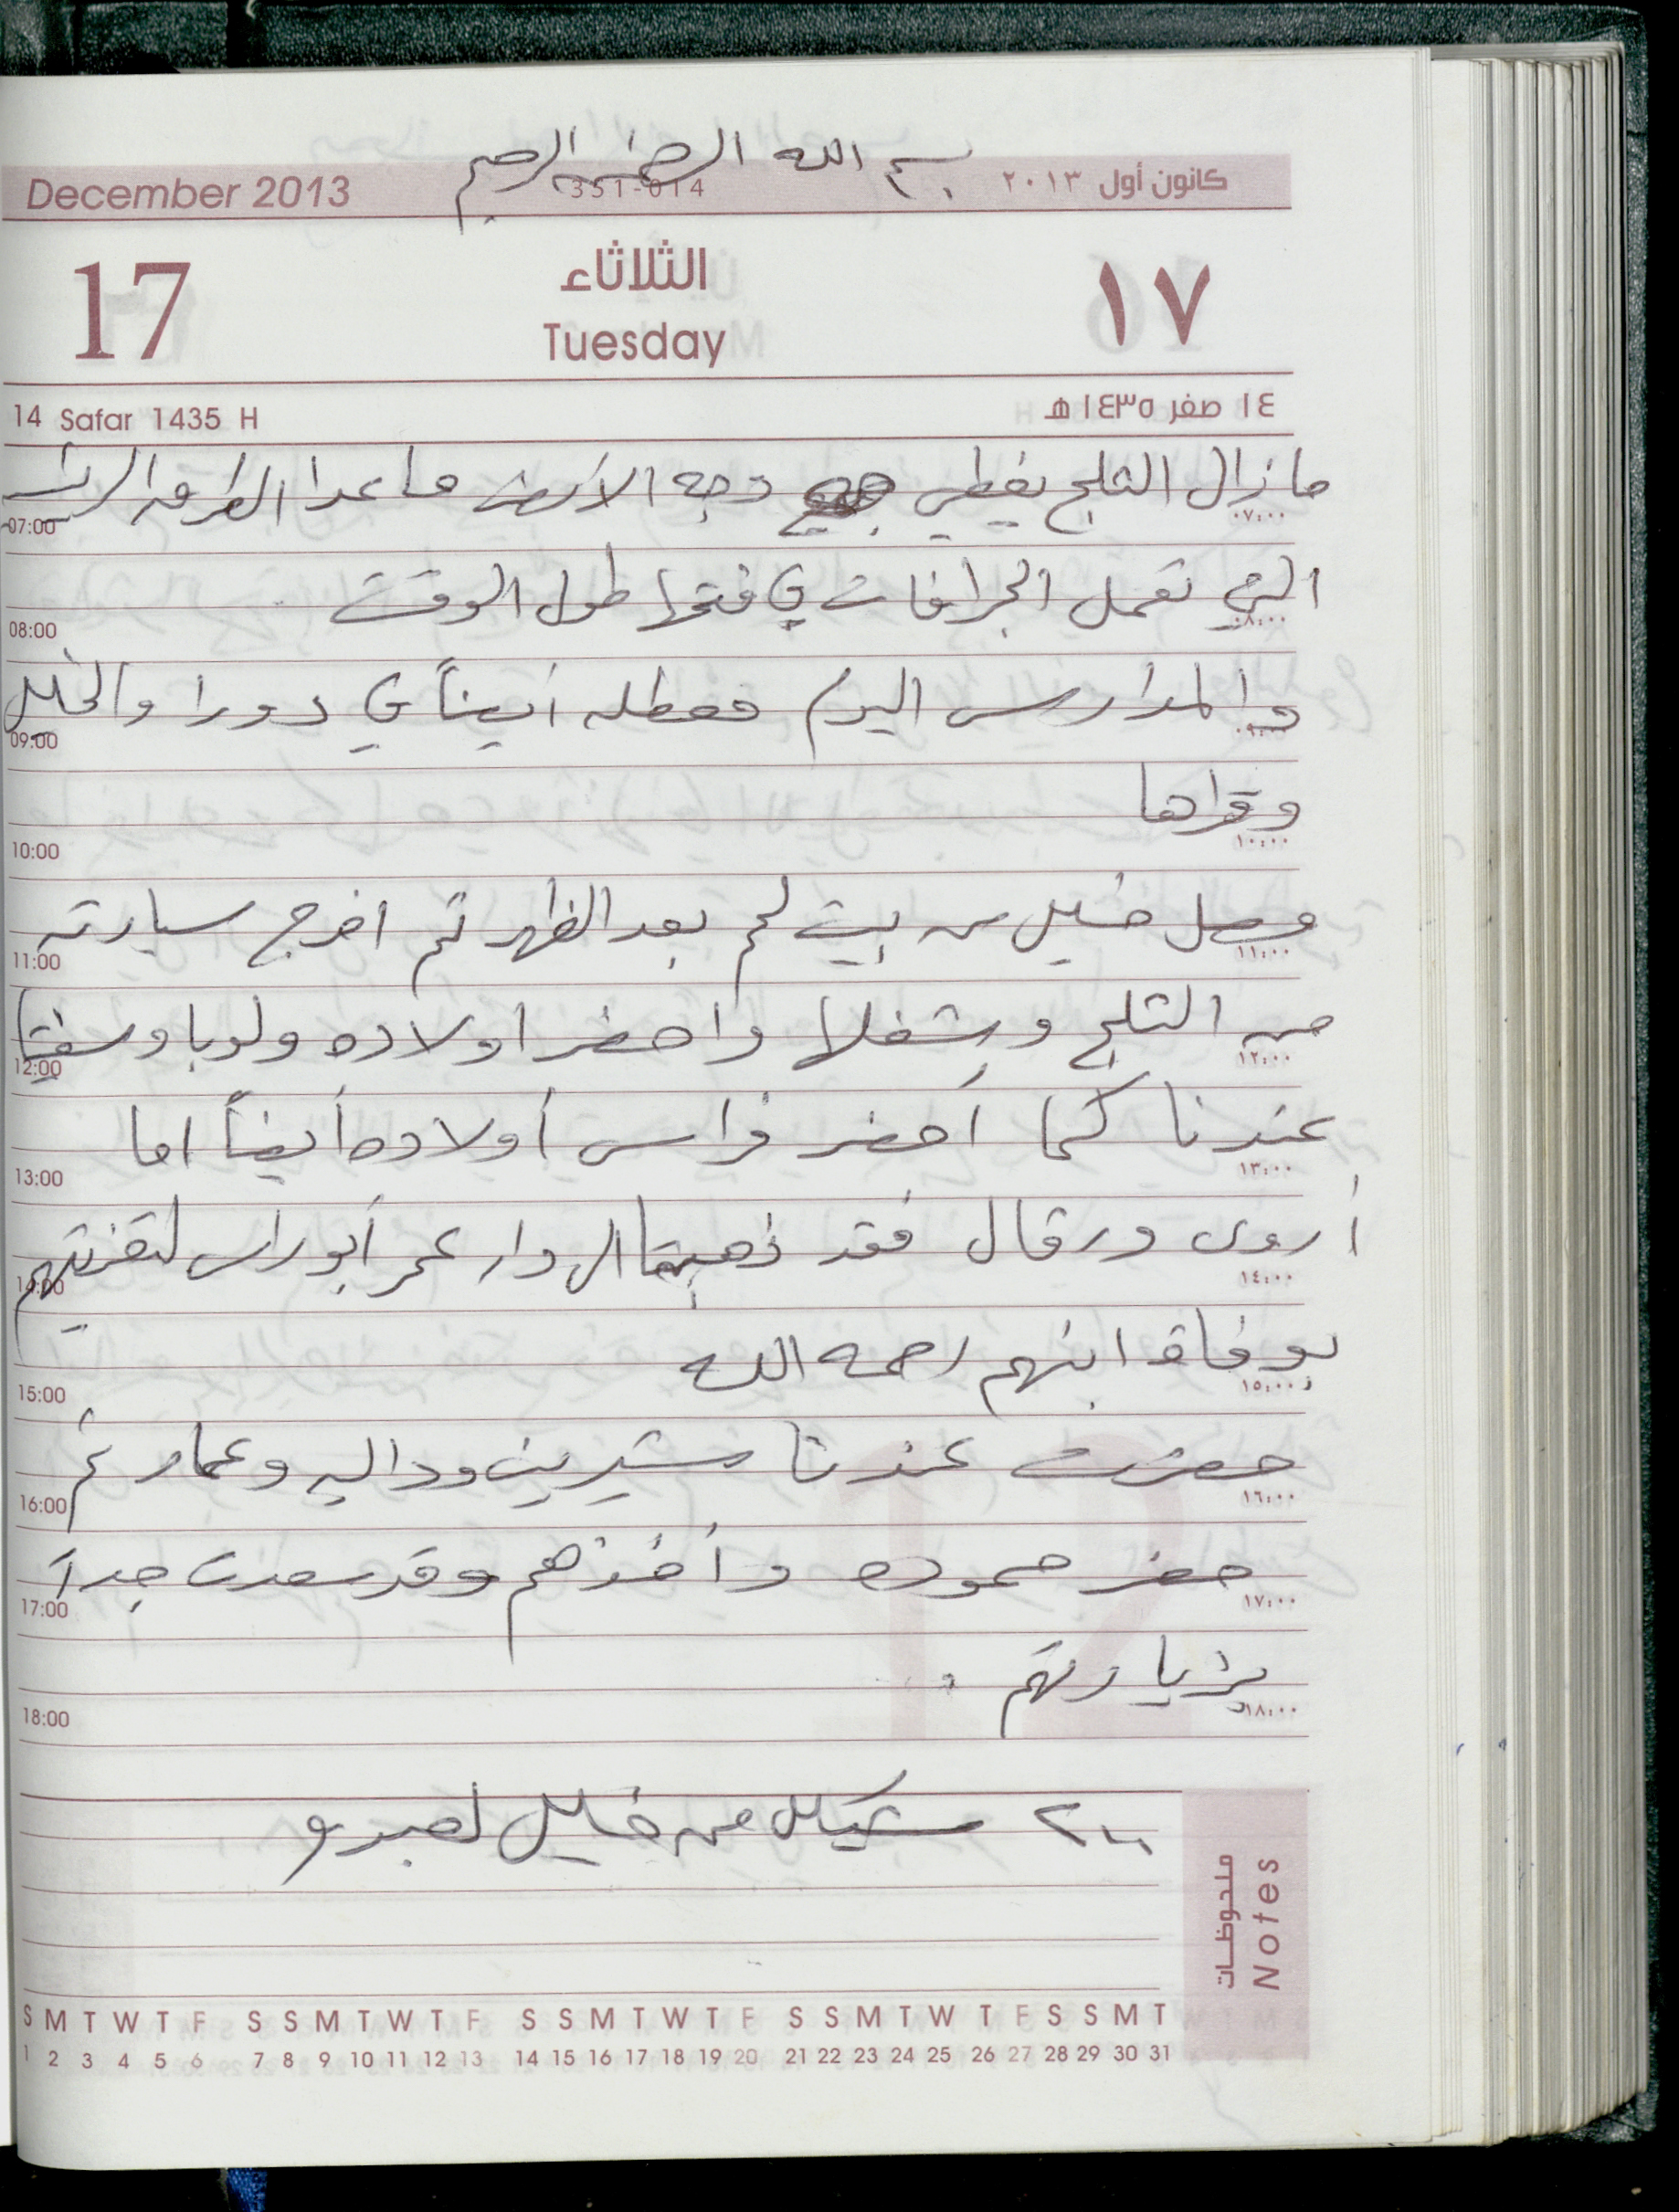 بسم الله الرحمن الرحيم
December 2013 351-014 كانون أول ٢٠١٣
17 الثلاثاء ١٧
Tuesday
14 Safar 1435 H ١٤ صفر ١٤٣٥ هـ
ما زال الثلج يغطي وجه الأرض ما عدا الطرق الرئيسيه
07:00 ٠٧:٠٠
التي تعمل الجرافات في فتحها طول الوقت
08:00 ٠٨:٠٠
والمدارس اليوم معطله أيضاً في دورا والخليل
09:00 ٠٩:٠٠
وقراها
10:00 ١٠:٠٠
وصل خليل من بيت لحم بعد الظهر ثم اخرج سيارته
11:00 ١١:٠٠
من الثلج وشغلها واحضر اولاده ولوبا
12:00 ١٢:٠٠
عندنا كما أحضر فراس أولاده أيضاً اما
13:00 ١٣:٠٠
أروى ورقال فقد ذهبتا الى دار عمر أبو راس لتعزيتهم
14:00 ١٤:٠٠
بوفاة ابنهم رحمه الله
15:00 ١٥:٠٠
حضرت عندنا شيرين وداليه وعمار ثم
16:00 ١٦:٠٠
حضر حموده وأخذهم وقد سعدت جداً
17:00 ١٧:٠٠
بزيارتهم .
18:00 ١٨:٠٠
٢٠٠ شيكل من خليل لعبدو
ملحوظات
Notes
S M T W T F S S M T W T F S S M T W T F S S M T W T F S S M T
1 2 3 4 5 6 7 8 9 10 11 12 13 14 15 16 17 18 19 20 21 22 23 24 25 26 27 28 29 30 31